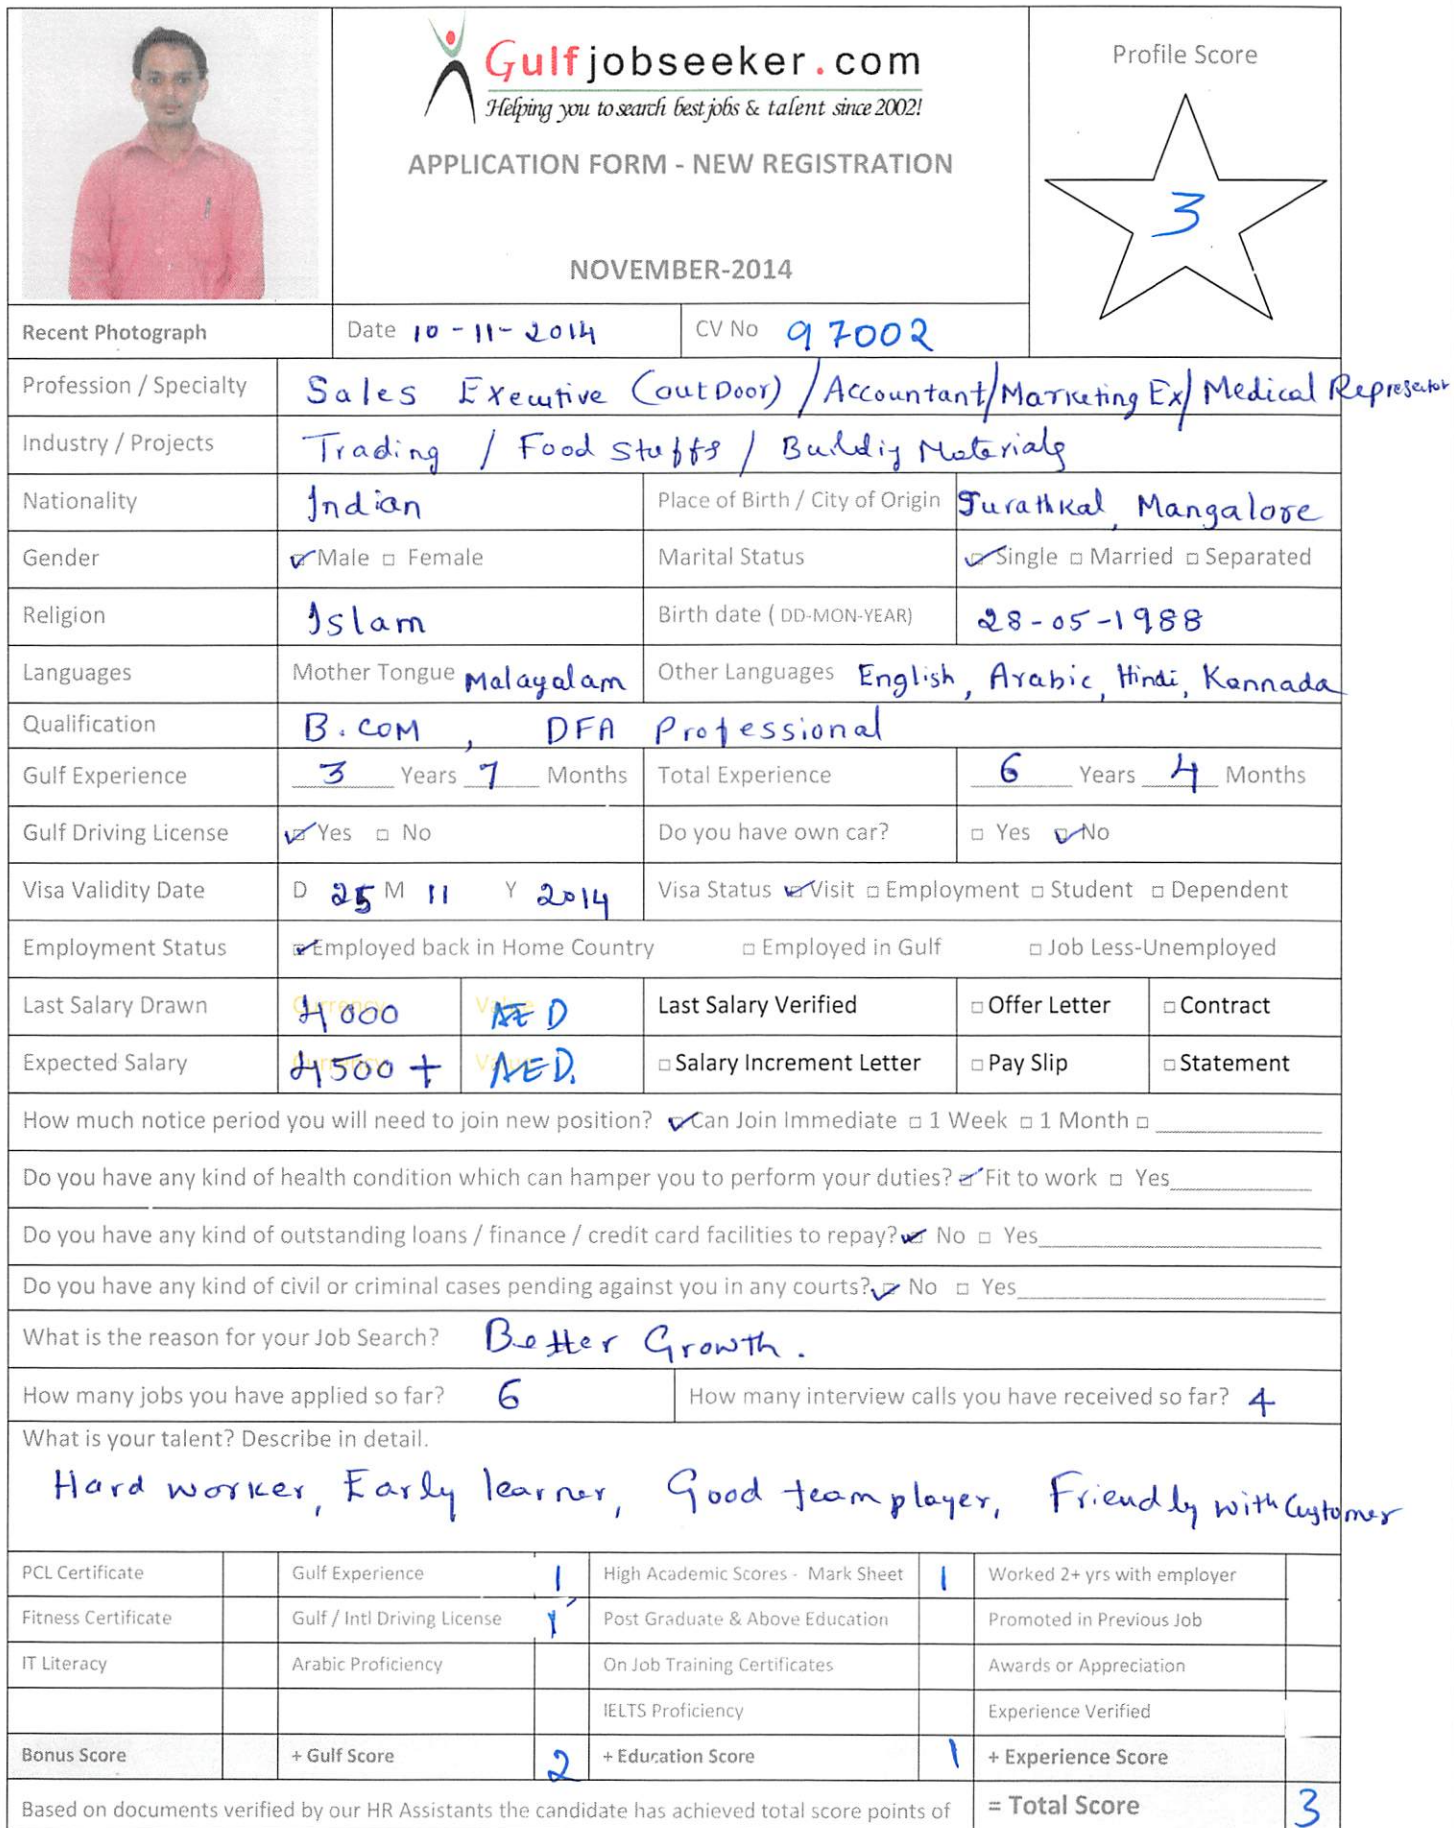 Gulfjobseeker.com
Helping you to search best jobs & talent since 2002!
Profile Score
APPLICATION FORM - NEW REGISTRATION
3
NOVEMBER-2014
Recent Photograph Date 10-11-2014 CV No 97002
Profession / Specialty Sales Executive (outDoor) / Accountant/Marketing Ex/ Medical Represetator
Industry / Projects Trading / Food stuffs / Buildig Materials
Nationality Indian Place of Birth / City of Origin Surathkal, Mangalore
Gender Male Female Marital Status Single Married Separated
Religion Islam Birth date ( DD-MON-YEAR) 28-05-1988
Languages Mother Tongue Malayalam Other Languages English, Arabic, Hindi, Kannada
Qualification B.COM, DFA Professional
Gulf Experience 3 Years 7 Months Total Experience 6 Years 4 Months
Gulf Driving License Yes No Do you have own car? Yes No
Visa Validity Date D 25 M 11 Y 2014 Visa Status Visit Employment Student Dependent
Employment Status Employed back in Home Country Employed in Gulf Job Less-Unemployed
Last Salary Drawn Currency 4000 Value AED Last Salary Verified Offer Letter Contract
Expected Salary Currency 4500+ Value AED. Salary Increment Letter Pay Slip Statement
How much notice period you will need to join new position? Can Join Immediate 1 Week 1 Month
Do you have any kind of health condition which can hamper you to perform your duties? Fit to work Yes
Do you have any kind of outstanding loans / finance / credit card facilities to repay? No Yes
Do you have any kind of civil or criminal cases pending against you in any courts? No Yes
What is the reason for your Job Search? Better Growth.
How many jobs you have applied so far? 6 How many interview calls you have received so far? 4
What is your talent? Describe in detail.
Hard worker, Early learner, Good team player, Friendly with Customer
PCL Certificate Gulf Experience 1 High Academic Scores - Mark Sheet 1 Worked 2+ yrs with employer
Fitness Certificate Gulf / Intl Driving License 1 Post Graduate & Above Education Promoted in Previous Job
IT Literacy Arabic Proficiency On Job Training Certificates Awards or Appreciation
IELTS Proficiency Experience Verified
Bonus Score + Gulf Score 2 + Education Score 1 + Experience Score
Based on documents verified by our HR Assistants the candidate has achieved total score points of = Total Score 3